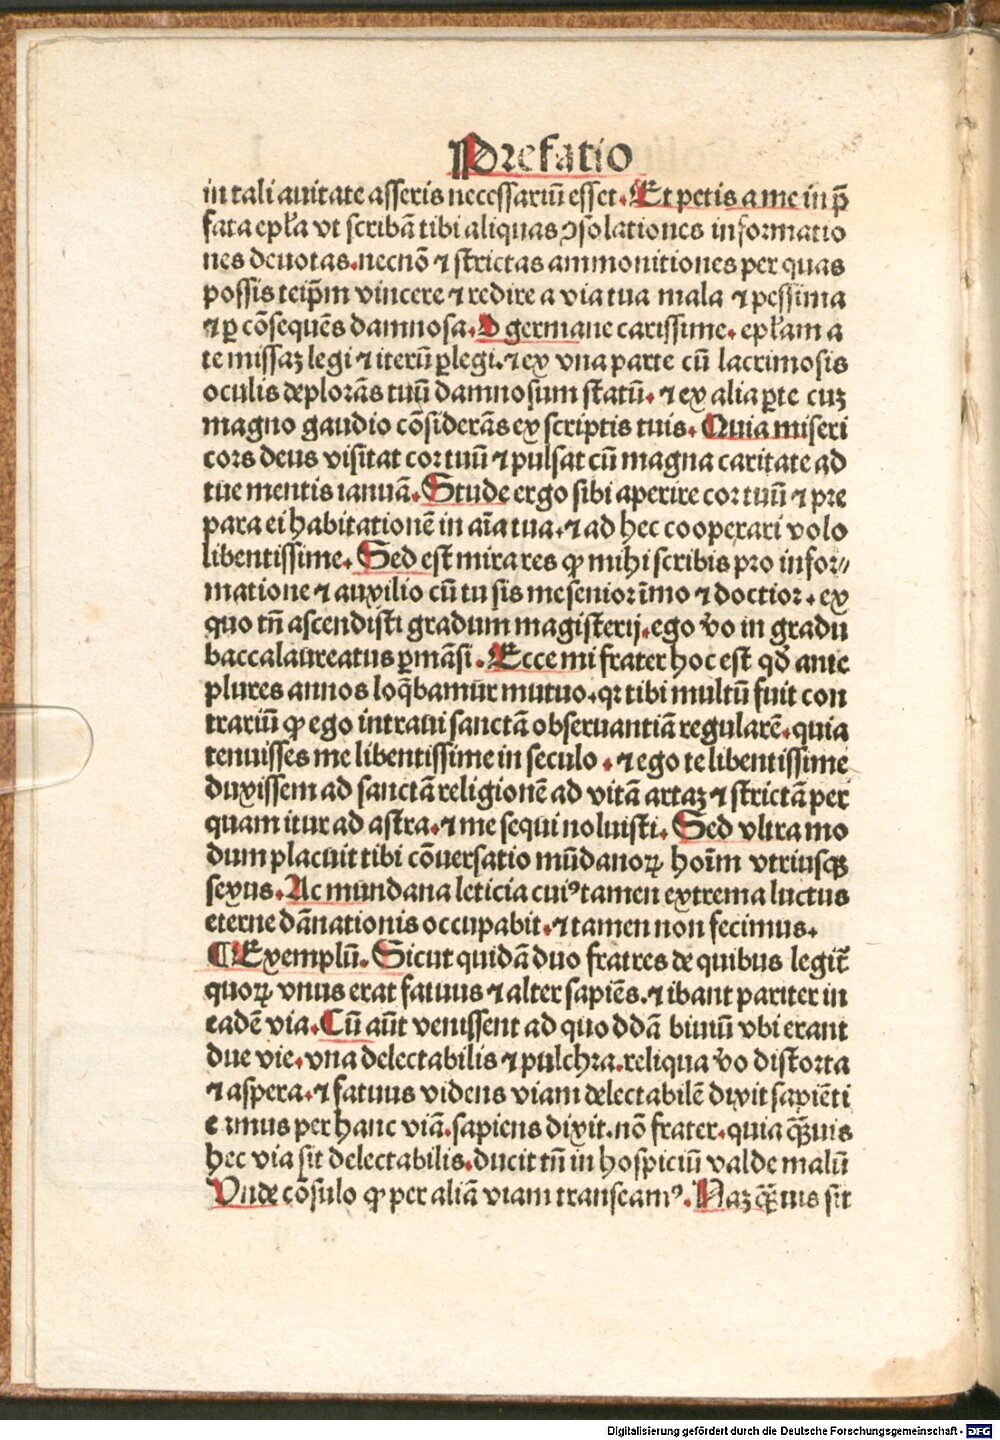 Prefatio
in tali auitate asseris necessariū esset. Et petis a me in p̄
fata ep̄ła vt scribā tibi aliquas ꝯsolationes informatio
nes deuotas. necnō ⁊ strictas ammonitiones per quas
possis teip̄m vincere ⁊ redire a via tua mala ⁊ pessima
⁊ ꝑ cōsequēs damnosa. O germane carissime. ep̄łam a
te missaꝫ legi ⁊ iterū ꝑlegi. ⁊ ex vna parte cū lacrimosis
oculis deplorās tuū damnosum statū. ⁊ ex alia ꝑte cuꝫ
magno gaudio cōsiderās ex scriptis tuis. Quia miseri
cors deus visitat cor tuū ⁊ pulsat cū magna caritate ad
tue mentis ianuā. Stude ergo sibi aperire cor tuū ⁊ pre
para ei habitationē in aīa tua. ⁊ ad hec cooperari volo
libentissime. Sed est mira res ꝙ mihi scribis pro infor//
matione ⁊ auxilio cū tu sis me senior īmo ⁊ doctior. ex
quo tn̄ ascendisti gradum magisterij. ego v̄o in gradu
baccalaureatus ꝑmāsi. Ecce mi frater hoc est qd̄ ante
plures annos loq̄bamur mutuo. qꝛ tibi multū fuit con
trariū ꝙ ego intraui sanctā obseruantiā regularē. quia
tenuisses me libentissime in seculo. ⁊ ego te libentissime
duxissem ad sanctā religionē ad vitā artaꝫ ⁊ strictā per
quam itur ad astra. ⁊ me sequi noluisti. Sed vltra mo
dum placuit tibi cōuersatio mūdanoꝝ hoīm vtriusqꝫ
sexus. Ac mundana leticia cuiꝰ tamen extrema luctus
eterne dānationis occupabit. ⁊ tamen non fecimus.
¶ Exemplū. Sicut quidā duo fratres de quibus legit᷑
quoꝝ vnus erat fatuus ⁊ alter sapiēs. ⁊ ibant pariter in
eadē via. Cū aūt venissent ad quoddā biuiū vbi erant
due vie. vna delectabilis ⁊ pulchra. reliqua v̄o distorta
⁊ aspera. ⁊ fatuus videns viam delectabilē dixit sapiēti
eamus per hanc viā. sapiens dixit. nō frater. quia q̄uis
hec via sit delectabilis. ducit tn̄ in hospiciū valde malū
Unde cōsulo ꝙ per aliā viam transeamꝰ. Naꝫ q̄uis sit
Digitalisierung gefördert durch die Deutsche Forschungsgemeinschaft - DFG